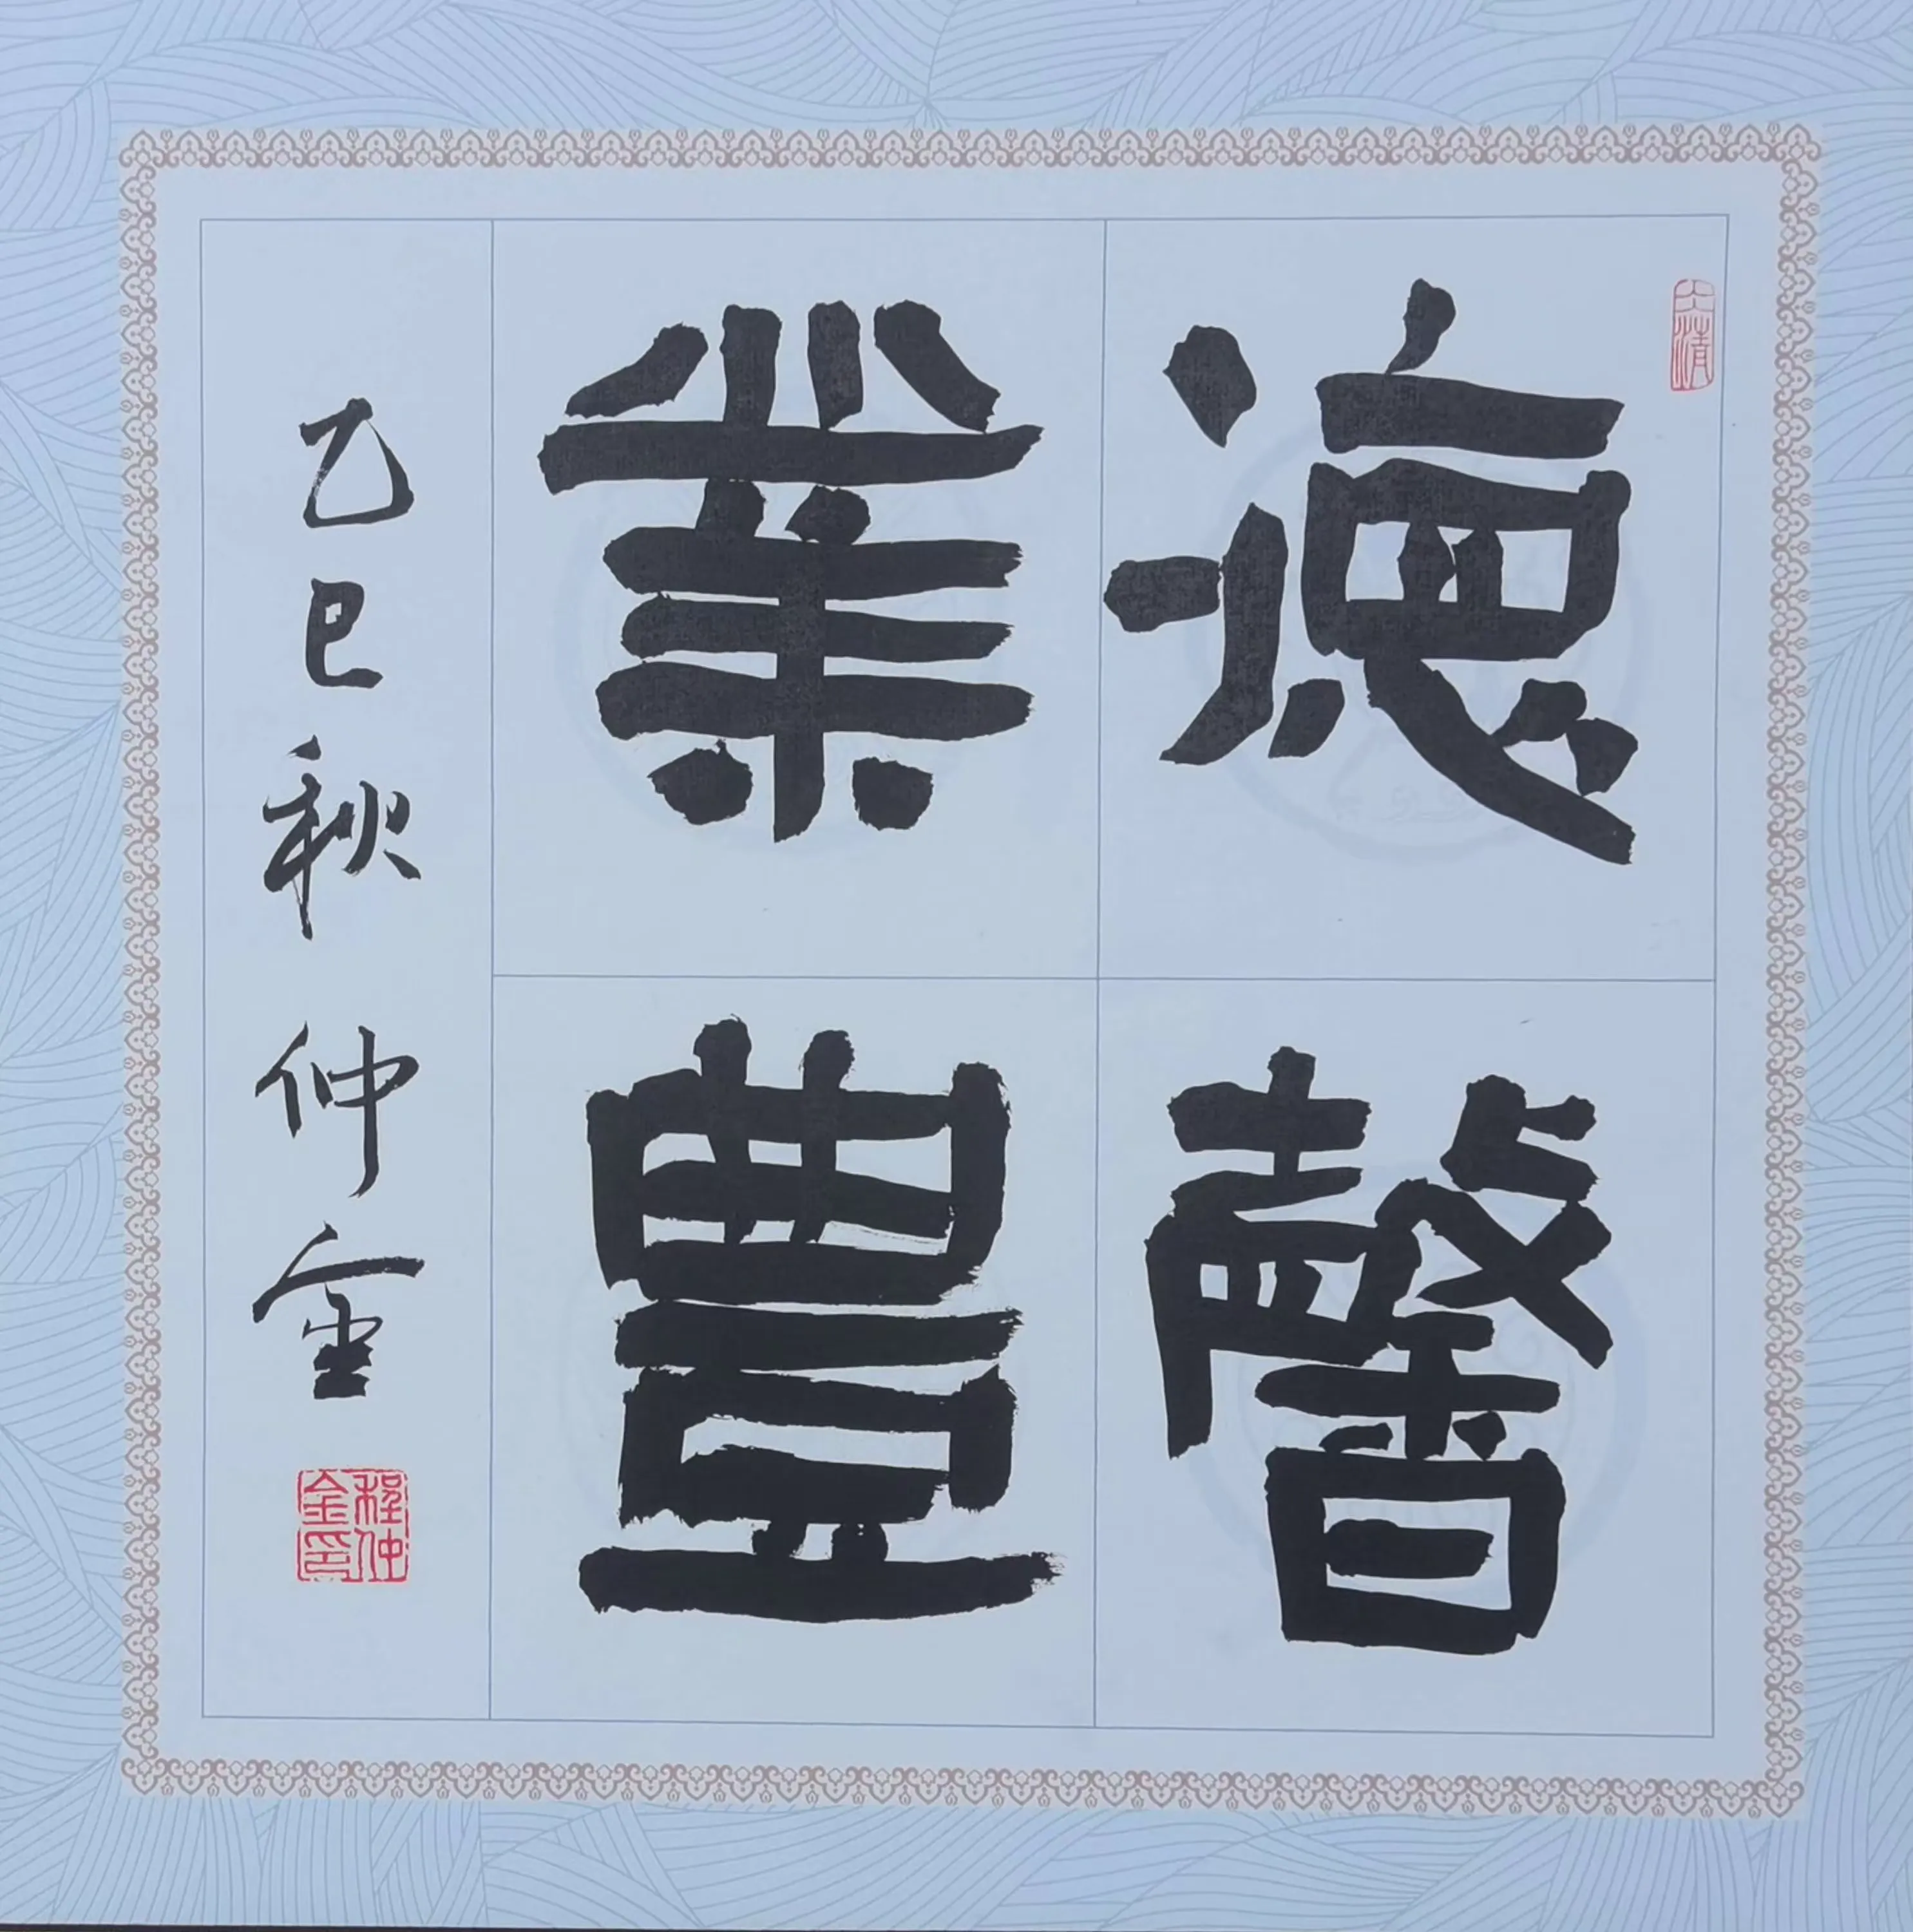 德馨
業豐
乙巳秋 仲金
程仲金印